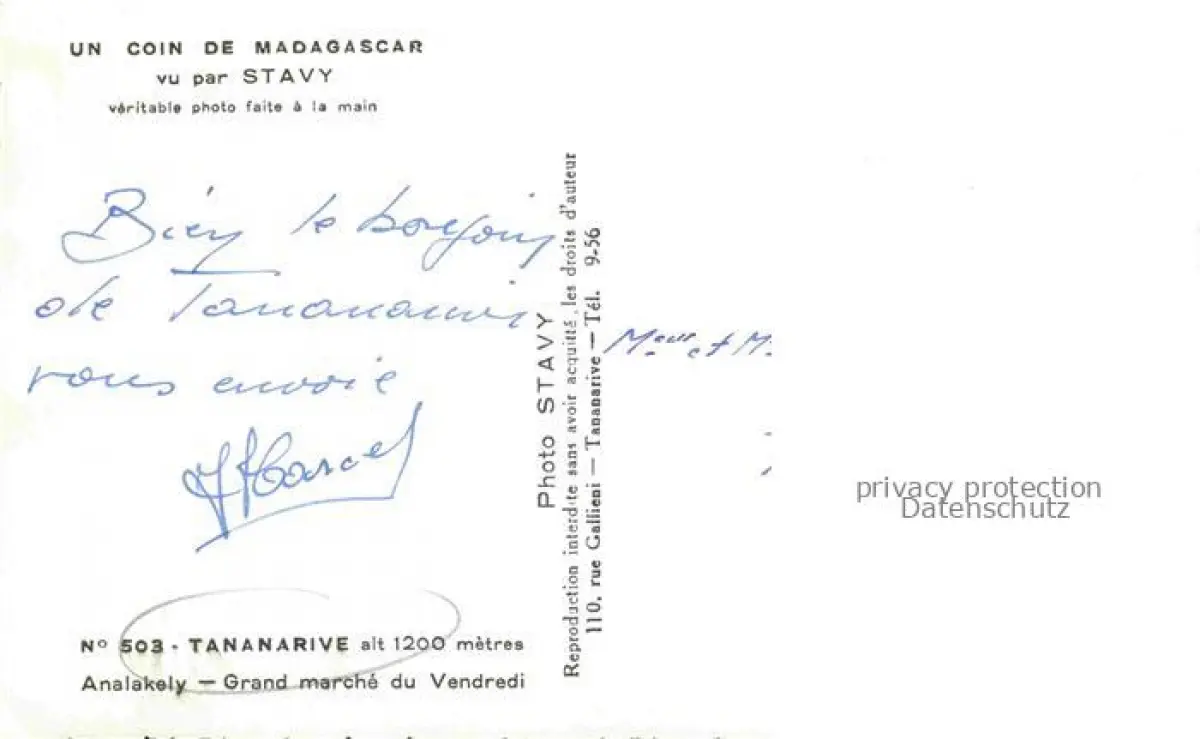 UN COIN DE MADAGASCAR
vu par STAVY
véritable photo faite à la main
Bien le bonjour
de Tananarive
vous envoie
Marcel
Nº 503 - TANANARIVE alt 1200 mètres
Analakely — Grand marché du Vendredi
Photo STAVY
Reproduction interdite sans avoir acquitté, les droits d'auteur
110, rue Gallieni — Tananarive — Tél. 9-56
Meur et M.
privacy protection
Datenschutz